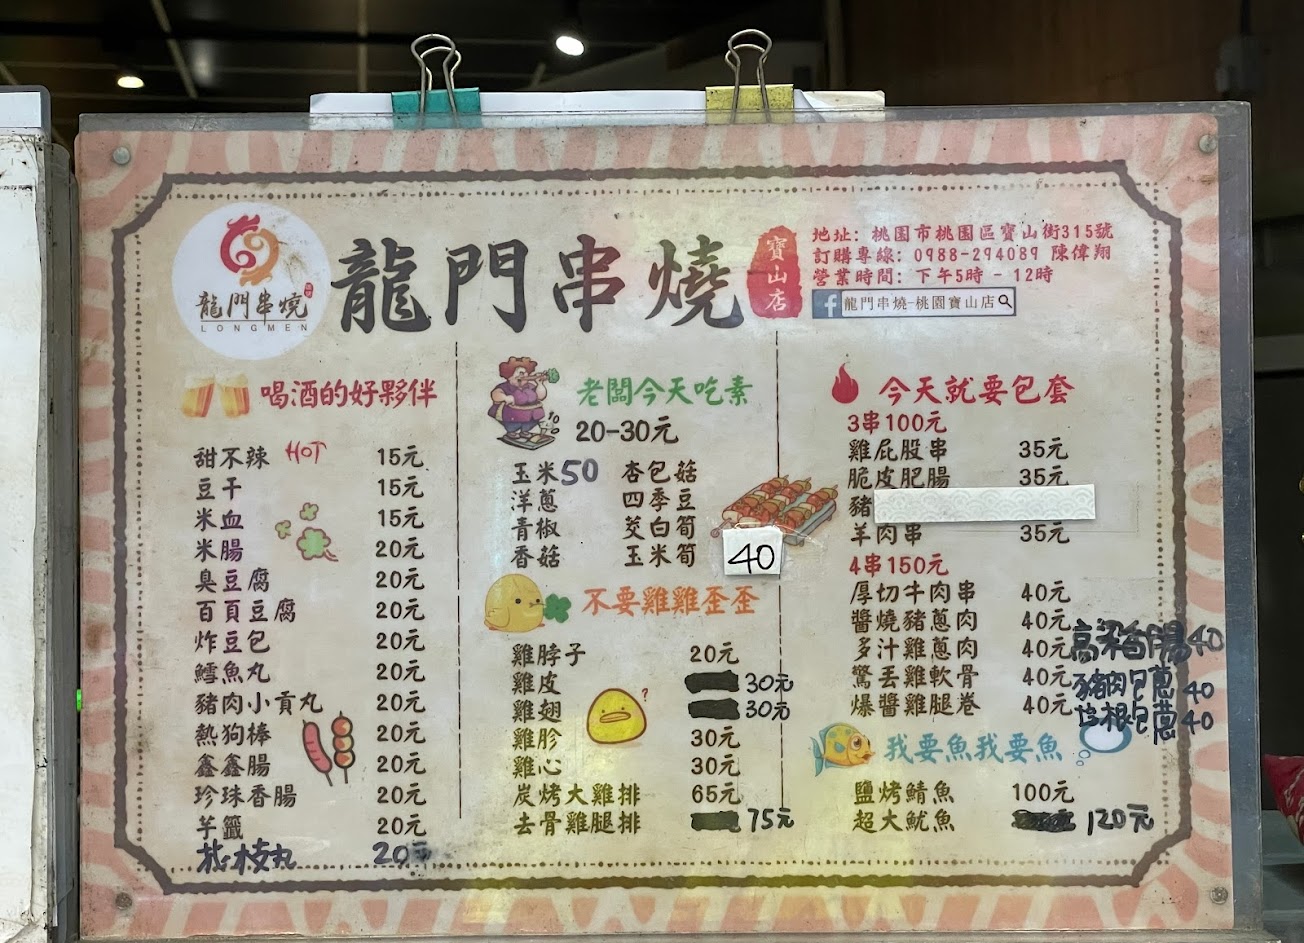 龍門串燒
LONGMEN
龍門串燒
寶山店
地址: 桃園市桃園區寶山街315號
訂購專線: 0988-294089 陳偉翔
營業時間: 下午5時 - 12時
龍門串燒-桃園寶山店
喝酒的好夥伴
甜不辣 HOT 15元
豆干 15元
米血 15元
米腸 20元
臭豆腐 20元
百頁豆腐 20元
炸豆包 20元
鱈魚丸 20元
豬肉小貢丸 20元
熱狗棒 20元
鑫鑫腸 20元
珍珠香腸 20元
芋籤 20元
花枝丸 20元
老闆今天吃素
20-30元
玉米50 杏包菇
洋蔥 四季豆
青椒 茭白筍
香菇 玉米筍 40
不要雞雞歪歪
雞脖子 20元
雞皮 30元
雞翅 30元
雞胗 30元
雞心 30元
炭烤大雞排 65元
去骨雞腿排 75元
今天就要包套
3串100元
雞屁股串 35元
脆皮肥腸 35元
豬
羊肉串 35元
4串150元
厚切牛肉串 40元
醬燒豬蔥肉 40元
多汁雞蔥肉 40元
驚丟雞軟骨 40元
爆醬雞腿卷 40元
高粱香腸40
豬肉包蔥 40
培根包蔥 40
我要魚我要魚
鹽烤鯖魚 100元
超大魷魚 120元